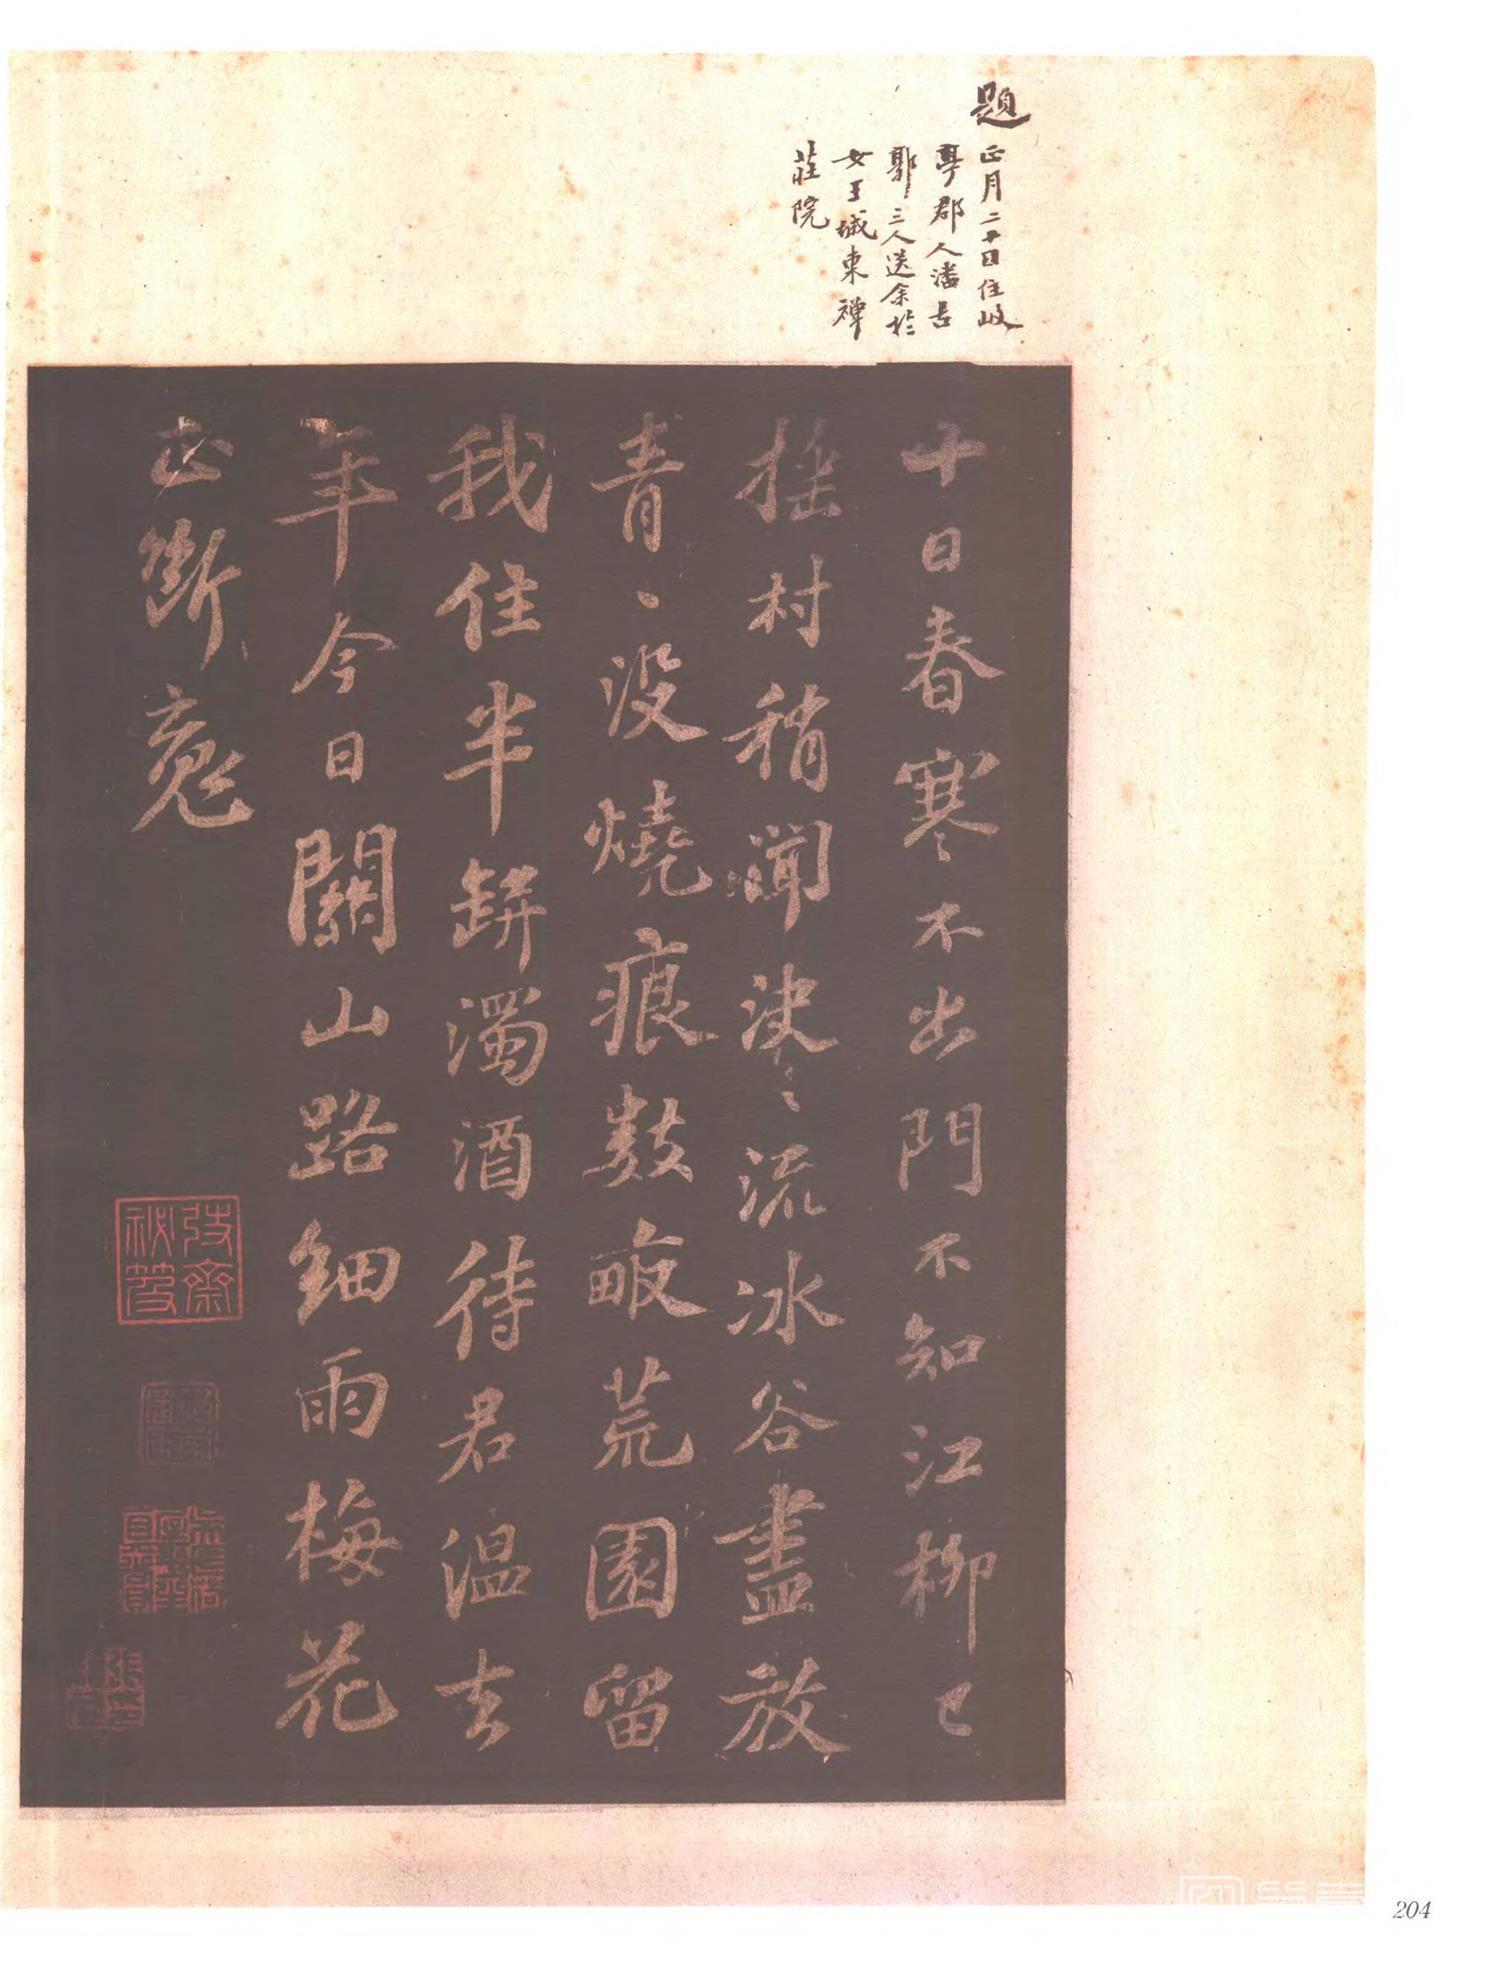 題正月二十日往岐
亭郡人潘古
郭三人送余於
女王城東禪
莊院
十日春寒不出門不知江柳已
搖村稍聞決〻流冰谷盡放
青〻没燒痕數畝荒園留
我住半缾濁酒待君温去
年今日關山路細雨梅花
正斷䰟
弢齋
祕笈
204